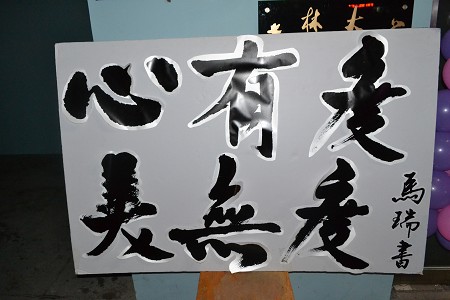 心有爱
美無度
馬瑞書